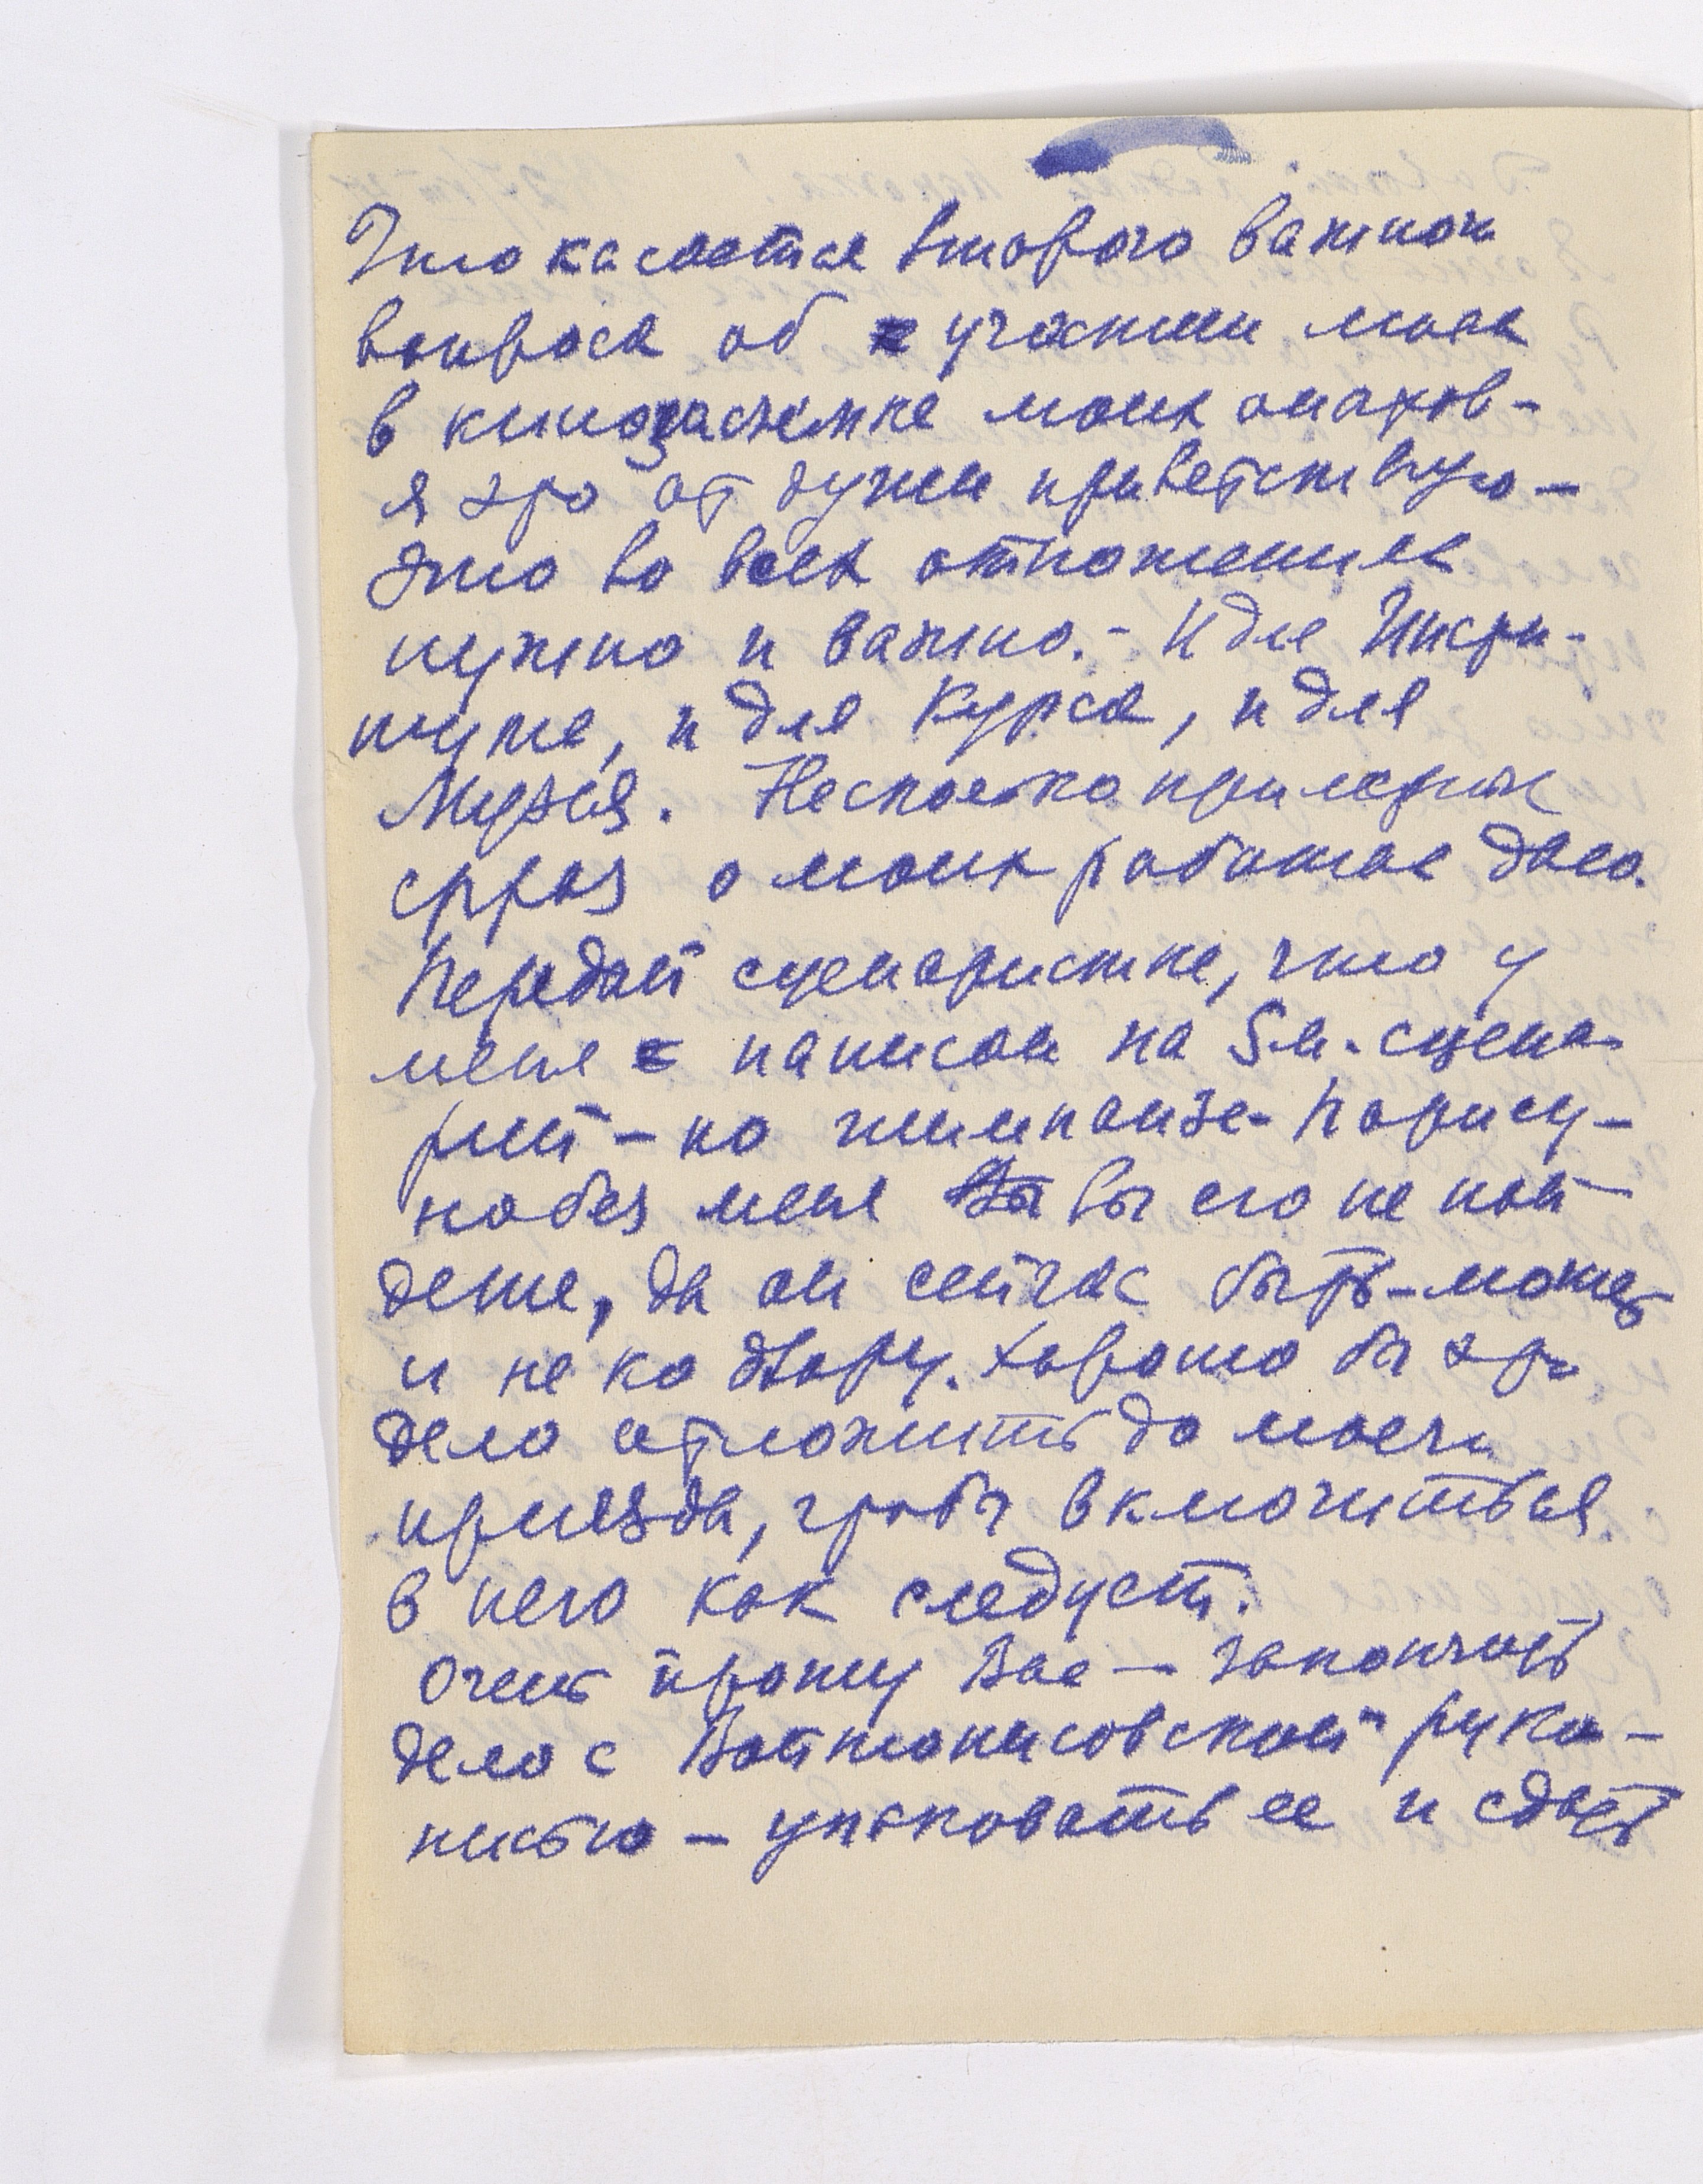 Что касается второго важного
вопроса об участии моем
в кинозасъемке моих опытов -
я это от души приветствую -
это во всех отношениях
нужно и важно. - И для Инсти-
тута, и для Курса, и для
Музея. Несколько примерных
фраз о моих работах даю.
Передай сценаристке, что у
меня написан на 5 м. сцена-
рий - по шимпанзе - Париси -
но без меня вы его не най-
дете, да он сейчас быть-может
и не ко двору. Хорошо бы это
дело отложить до моего
приезда, чтобы включиться
в него как следует.
Очень прошу Вас - закончить
дело с Войтонисовской руко-
писью - упаковать ее и сдать